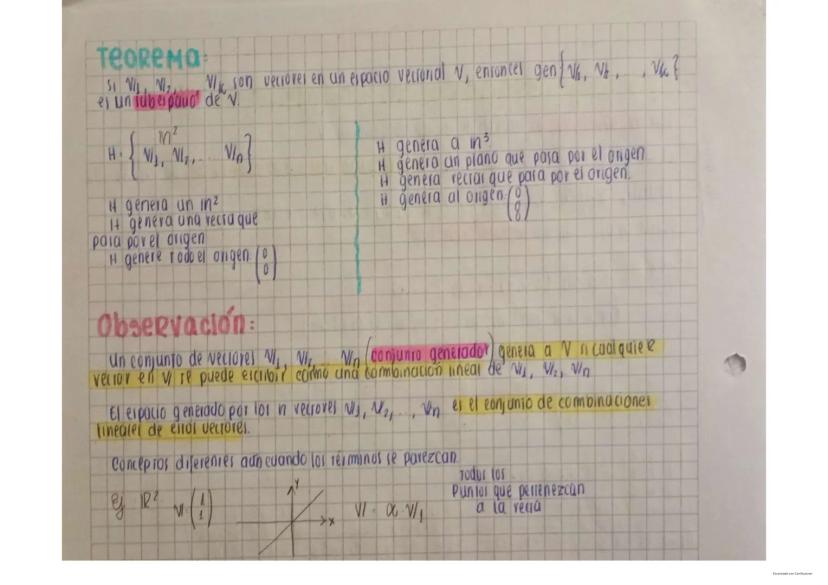 Teorema:
Si V1, V2, Vk son vectores en un espacio vectorial V, entonces gen{V1, V2, , Vk}
es un subespacio de V.
in²
H = { V1, V2, ... Vn }
H genera un in²
H genera una recta que
pasa por el origen
H genere todo el origen (0
0)
H genera a in³
H genera un plano que pasa por el origen
H genera rectas que pasa por el origen.
H genera al origen (0
0
0)
Observación:
Un conjunto de vectores V1, V2, Vn (conjunto generador) genera a V si cualquier
vector en V se puede escribir como una combinación lineal de V1, V2, Vn
El espacio generado por los n vectores V1, V2, ..., Vn es el conjunto de combinaciones
lineales de estos vectores.
Conceptos diferentes aún cuando los términos se parezcan.
Ej R² V1 (1
1)
Y
X
V1 = α V1
Todos los
Puntos que pertenezcan
a la recta
Escaneado con CamScanner